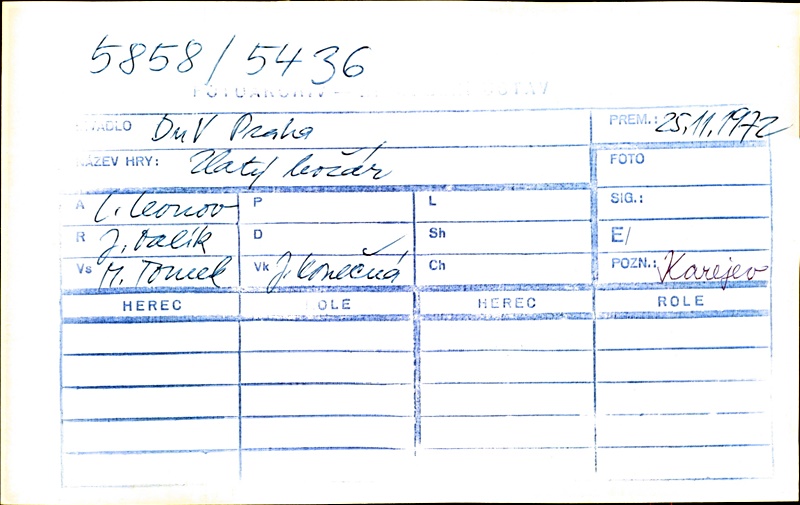 5858/5436
DIVADLO DnV Praha PREM.: 25.11.1972
NÁZEV HRY: Zlatý kočár FOTO
A L. Leonov P L SIG.:
R J. Dalík D Sh E/
Vs M. Tomek Vk J. Konečná Ch POZN.: Karejev
HEREC ROLE HEREC ROLE